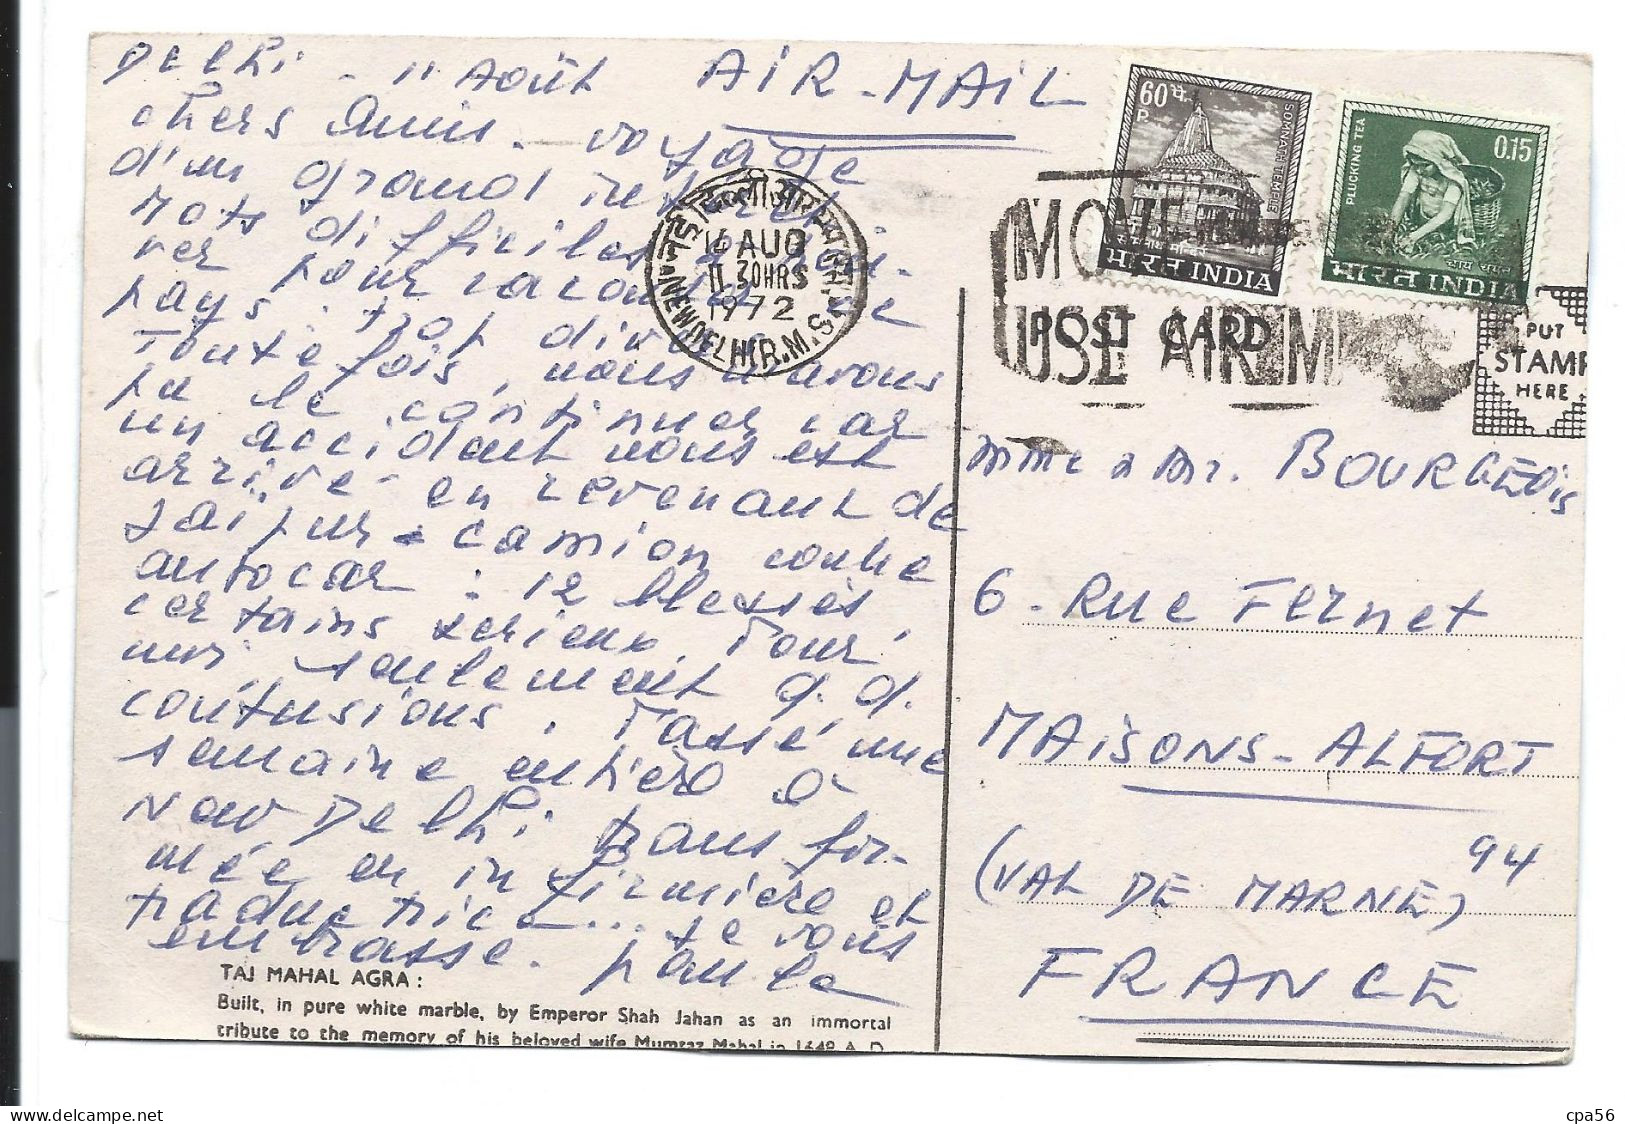 Delhi - 11 Août AIR-MAIL
chers amis. voyage
d'un grand intérêt
Mots difficiles à trou-
ver pour raconter ce
pays : trop divers.
Toutefois, nous n'avons
pu le continuer car
un accidant nous est
arrivé en revenant de
Jaïpur - camion contre
autocar : 12 blessés,
certains sérieux. Pour
moi, seulement q.q.
contusions. Passé une
semaine entière à
New Delhi transfor-
mée en infirmière et
traductrice.... je vous
embrasse. paule
TAJ MAHAL AGRA :
Built, in pure white marble, by Emperor Shah Jahan as an immortal
tribute to the memory of his beloved wife Mumtaz Mahal in 1648 A. D.
NEW DELHI R.M.S.
14 AUG
11 30HRS
1972
60 पै.
P.
SOMNATH TEMPLE
भारत INDIA
0.15
PLUCKING TEA
चाय चयन
भारत INDIA
MOVE
USE AIR M
POST CARD
PUT
STAMP
HERE
Mme & Mr. BOURGEOIS
6 - Rue Fernet
MAISONS-ALFORT
(VAL DE MARNE) 94
FRANCE
cpa56